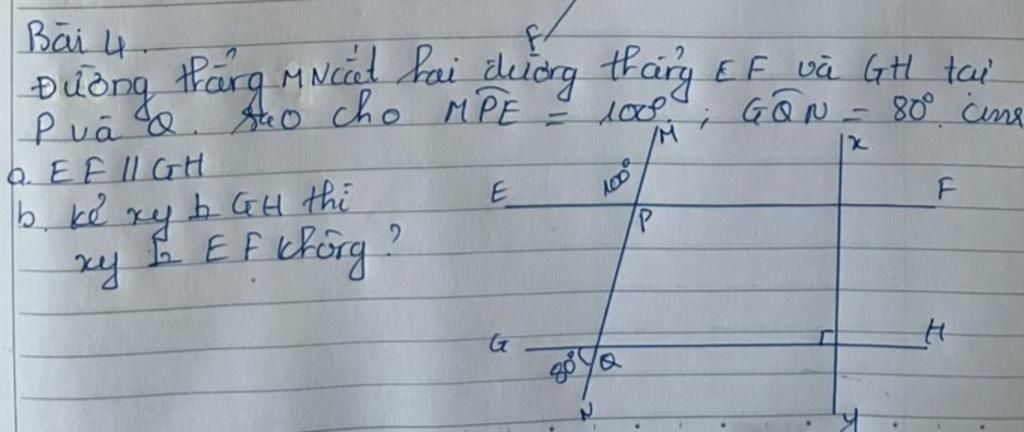 Bài 4.
F
Đường thẳng MN cắt hai đường thẳng EF và GH tại
P và Q. sao cho MPE = 100°; GQN = 80°. cmr
a. EF // GH
b. kẻ xy ⊥ GH thì
xy ⊥ EF không?
M
x
100°
E
F
P
G
H
80°
Q
N
y